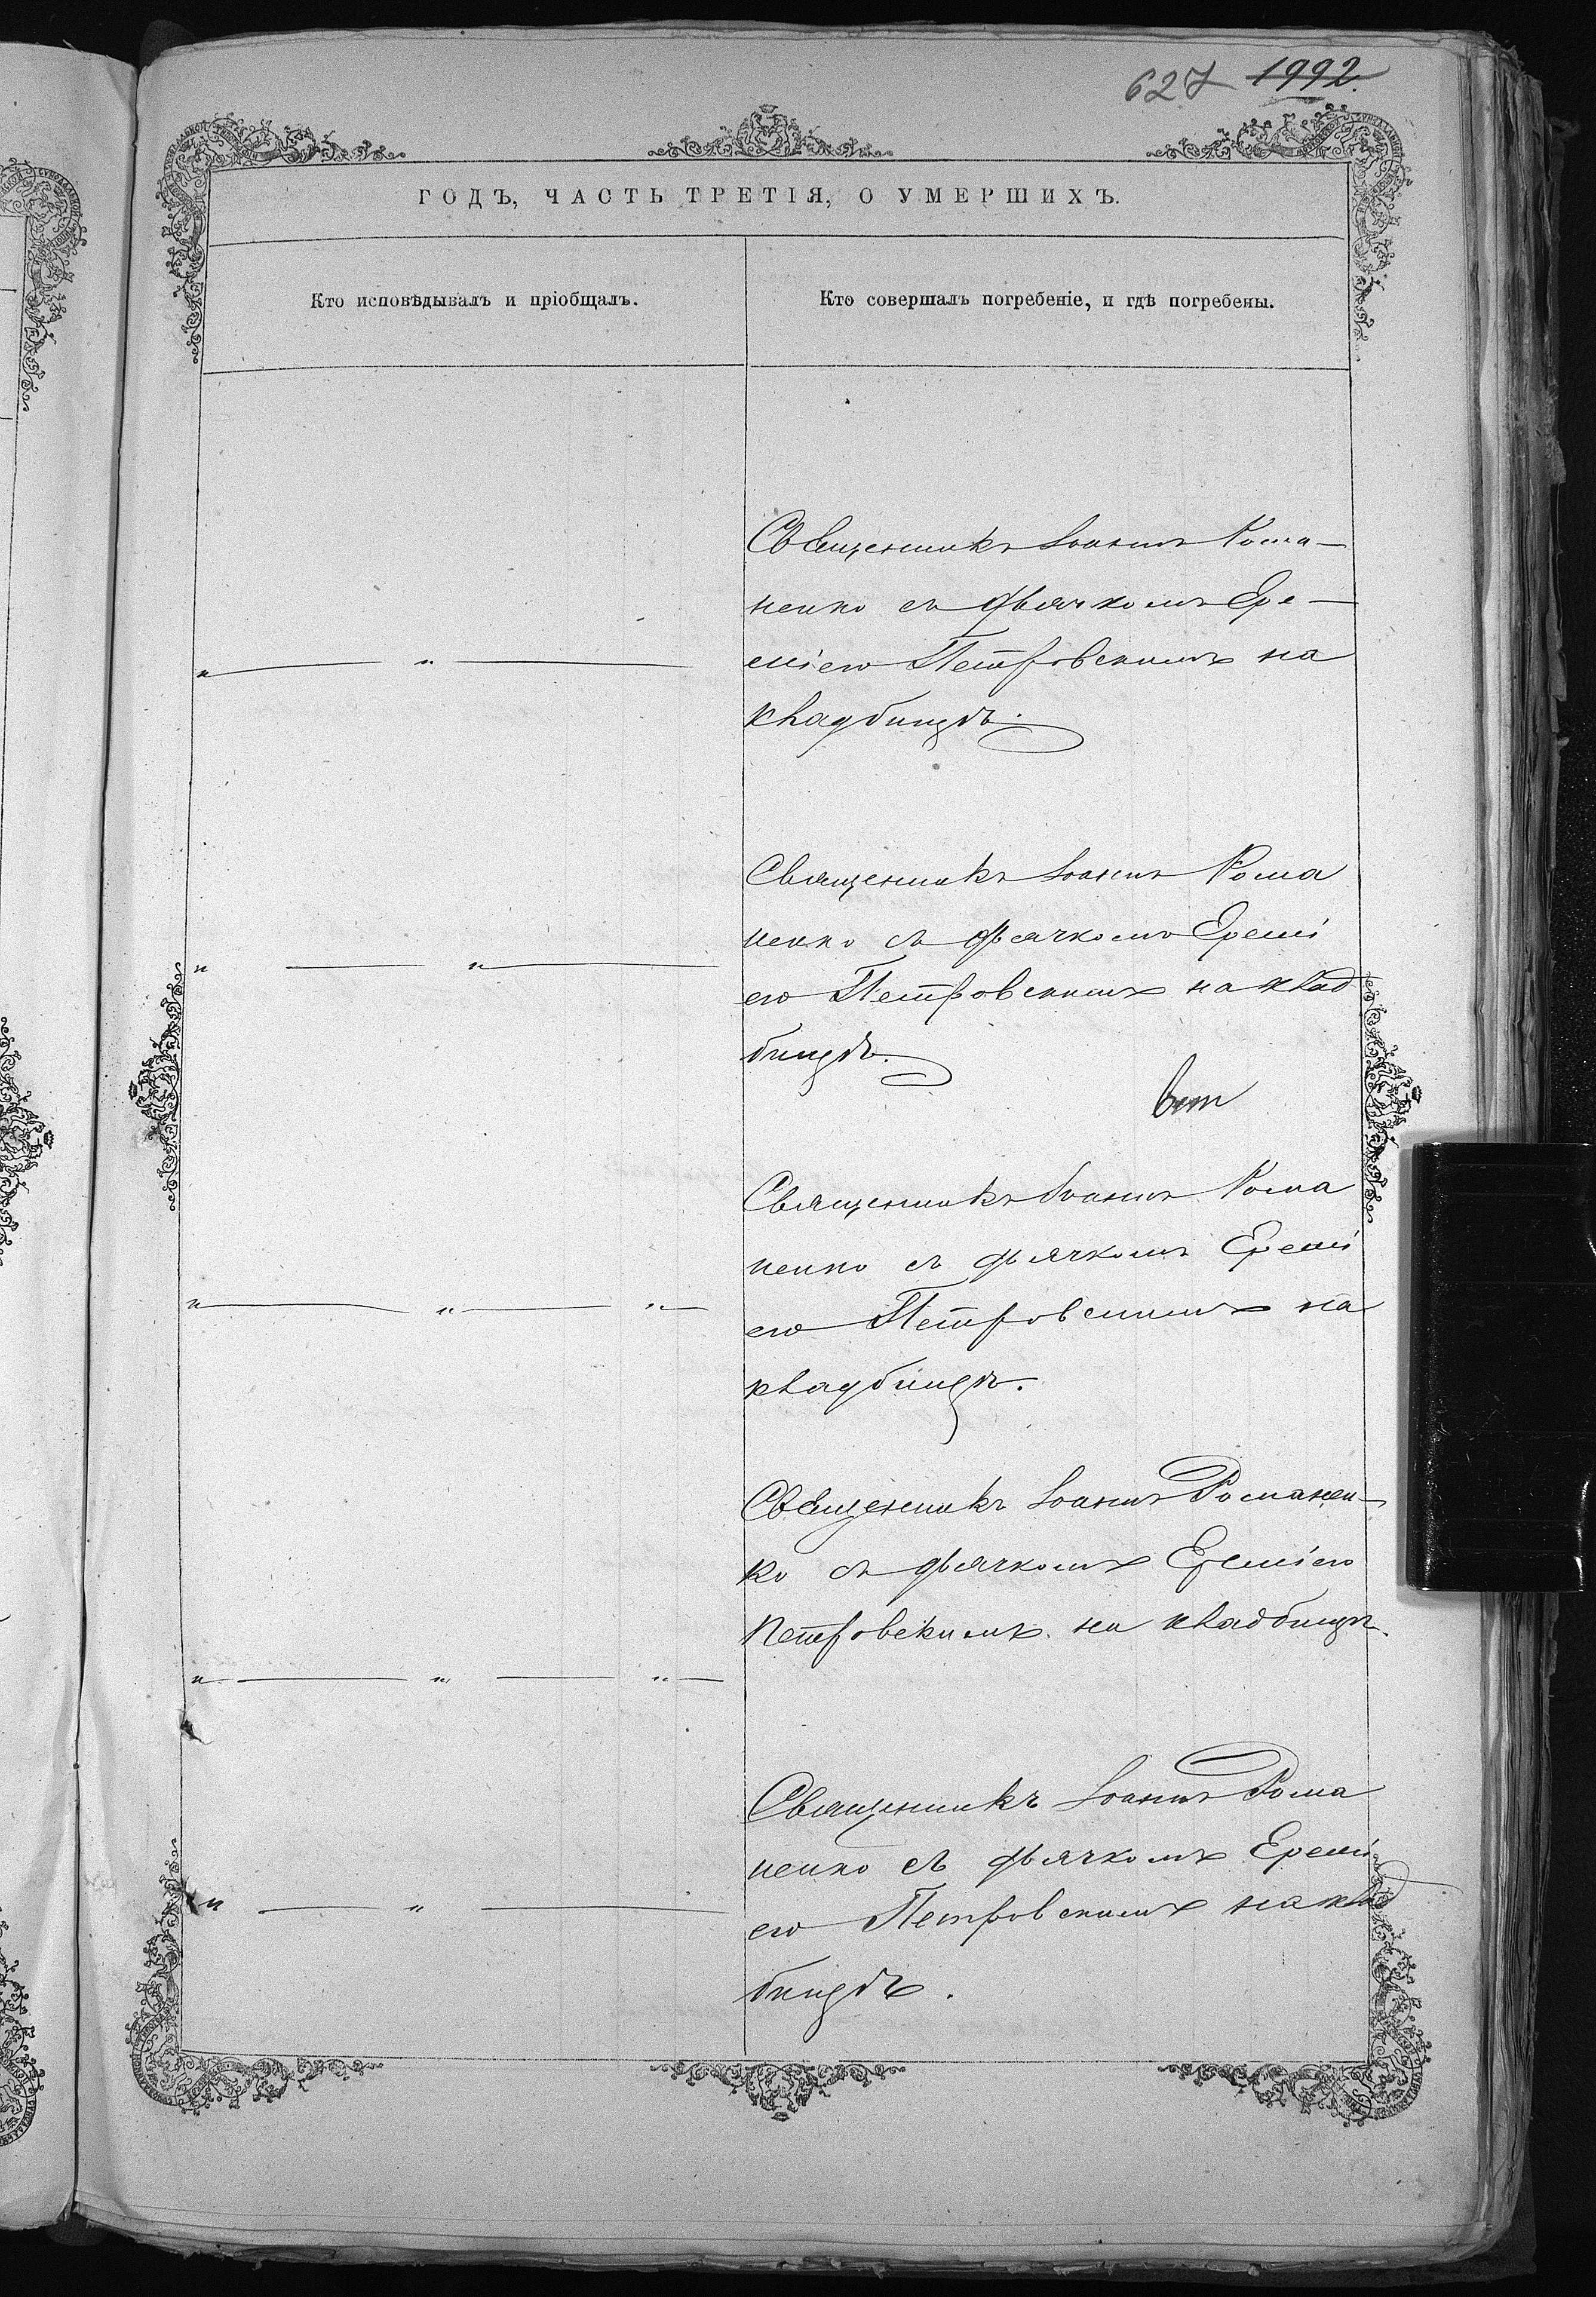 627 1992.
ГОДЪ, ЧАСТЬ ТРЕТІЯ, О УМЕРШИХЪ.
Кто исповѣдывалъ и пріобщалъ.
Кто совершалъ погребеніе, и гдѣ погребены.
Священникъ Іоаннъ Рома-
ненко съ дьячкомъ Ере-
міею Петровскимъ на
кладбищѣ.
Священникъ Іоаннъ Рома
ненко съ дьячкомъ Еремі
ею Петровскимъ на клад
бищѣ.
Священникъ Іоаннъ Рома
ненко съ дьячкомъ Еремі
ею Петровскимъ на
кладбищѣ.
Священникъ Іоаннъ Романен-
ко съ дьячкомъ Ереміею
Петровскимъ на кладбищѣ.
Священникъ Іоаннъ Рома
ненко съ дьячкомъ Еремі
ею Петровскимъ на клад
бищѣ.